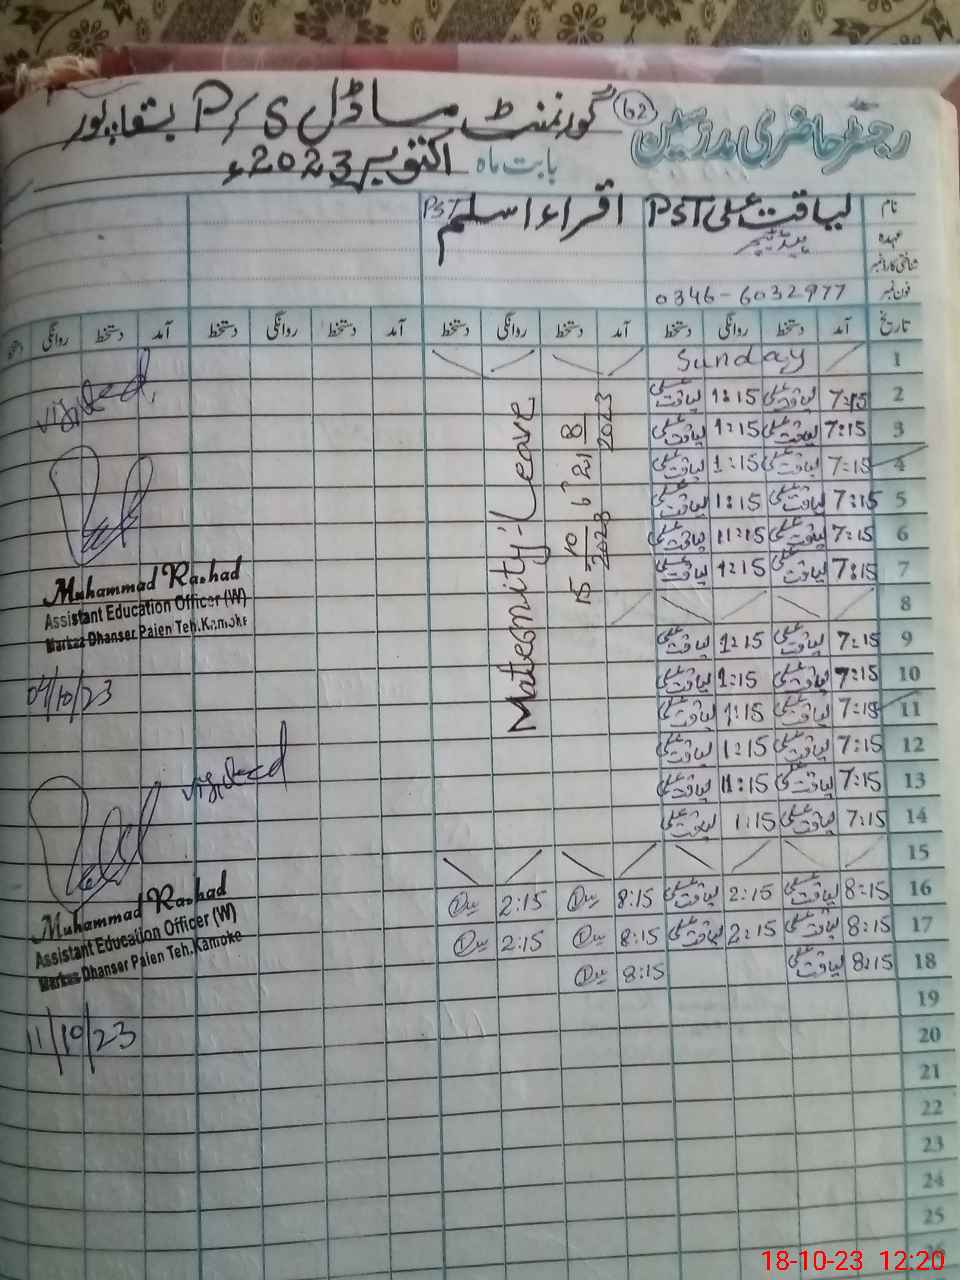 رجسٹر حاضری مدرسین 62 گورنمنٹ ماڈل P/S بقاپور
بابت ماہ اکتوبر 2023ء
نام لیاقت علی PST اقراء اسلم PST
عہدہ ہیڈ ٹیچر
شناختی کارڈ نمبر
فون نمبر 0346-6032977
تاریخ آمد دستخط روانگی دستخط آمد دستخط روانگی دستخط آمد دستخط روانگی دستخط آمد دستخط روانگی دستخط
1 Sunday
2 7:15 لیاقت علی 1:15 لیاقت علی
3 7:15 لیاقت علی 1:15 لیاقت علی
4 7:15 لیاقت علی 1:15 لیاقت علی
5 7:15 لیاقت علی 1:15 لیاقت علی
6 7:15 لیاقت علی 11:15 لیاقت علی
7 7:15 لیاقت علی 1:15 لیاقت علی
8
9 7:15 لیاقت علی 1:15 لیاقت علی
10 7:15 لیاقت علی 1:15 لیاقت علی
11 7:15 لیاقت علی 1:15 لیاقت علی
12 7:15 لیاقت علی 1:15 لیاقت علی
13 7:15 لیاقت علی 11:15 لیاقت علی
14 7:15 لیاقت علی 1:15 لیاقت علی
15
16 8:15 لیاقت علی 2:15 لیاقت علی 8:15 2:15
17 8:15 لیاقت علی 2:15 لیاقت علی 8:15 2:15
18 8:15 لیاقت علی 8:15
19
20
21
22
23
24
25
26
Maternity Leave
15 10 2023 to 21 8 2023
visited
Muhammad Rashad
Assistant Education Officer (W)
Markaz Dhanser Paien Teh.Kamoke
04/10/23
visited
Muhammad Rashad
Assistant Education Officer (W)
Markaz Dhanser Paien Teh.Kamoke
11/10/23
18-10-23 12:20